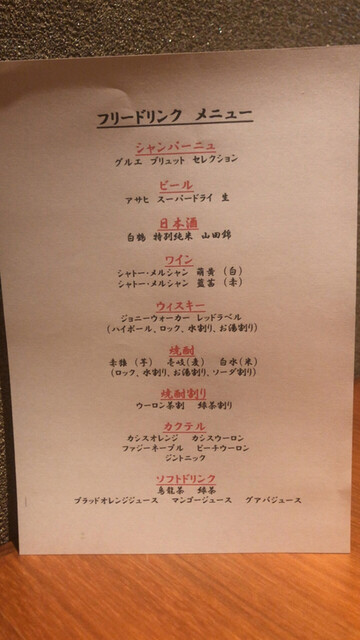 フリードリンク メニュー
シャンパーニュ
グルエ ブリュット セレクション
ビール
アサヒ スーパードライ 生
日本酒
白鶴 特別純米 山田錦
ワイン
シャトー・メルシャン 萌黄 (白)
シャトー・メルシャン 藍茜 (赤)
ウィスキー
ジョニーウォーカー レッドラベル
(ハイボール、ロック、水割り、お湯割り)
焼酎
(芋) 壱岐(麦) 白水(米)
(ロック、水割り、お湯割り、ソーダ割り)
焼酎割り
ウーロン茶割 緑茶割り
カクテル
カシスオレンジ カシスウーロン
ファジーネーブル ピーチウーロン
ジントニック
ソフトドリンク
烏龍茶 緑茶
ブラッドオレンジジュース マンゴージュース グアバジュース